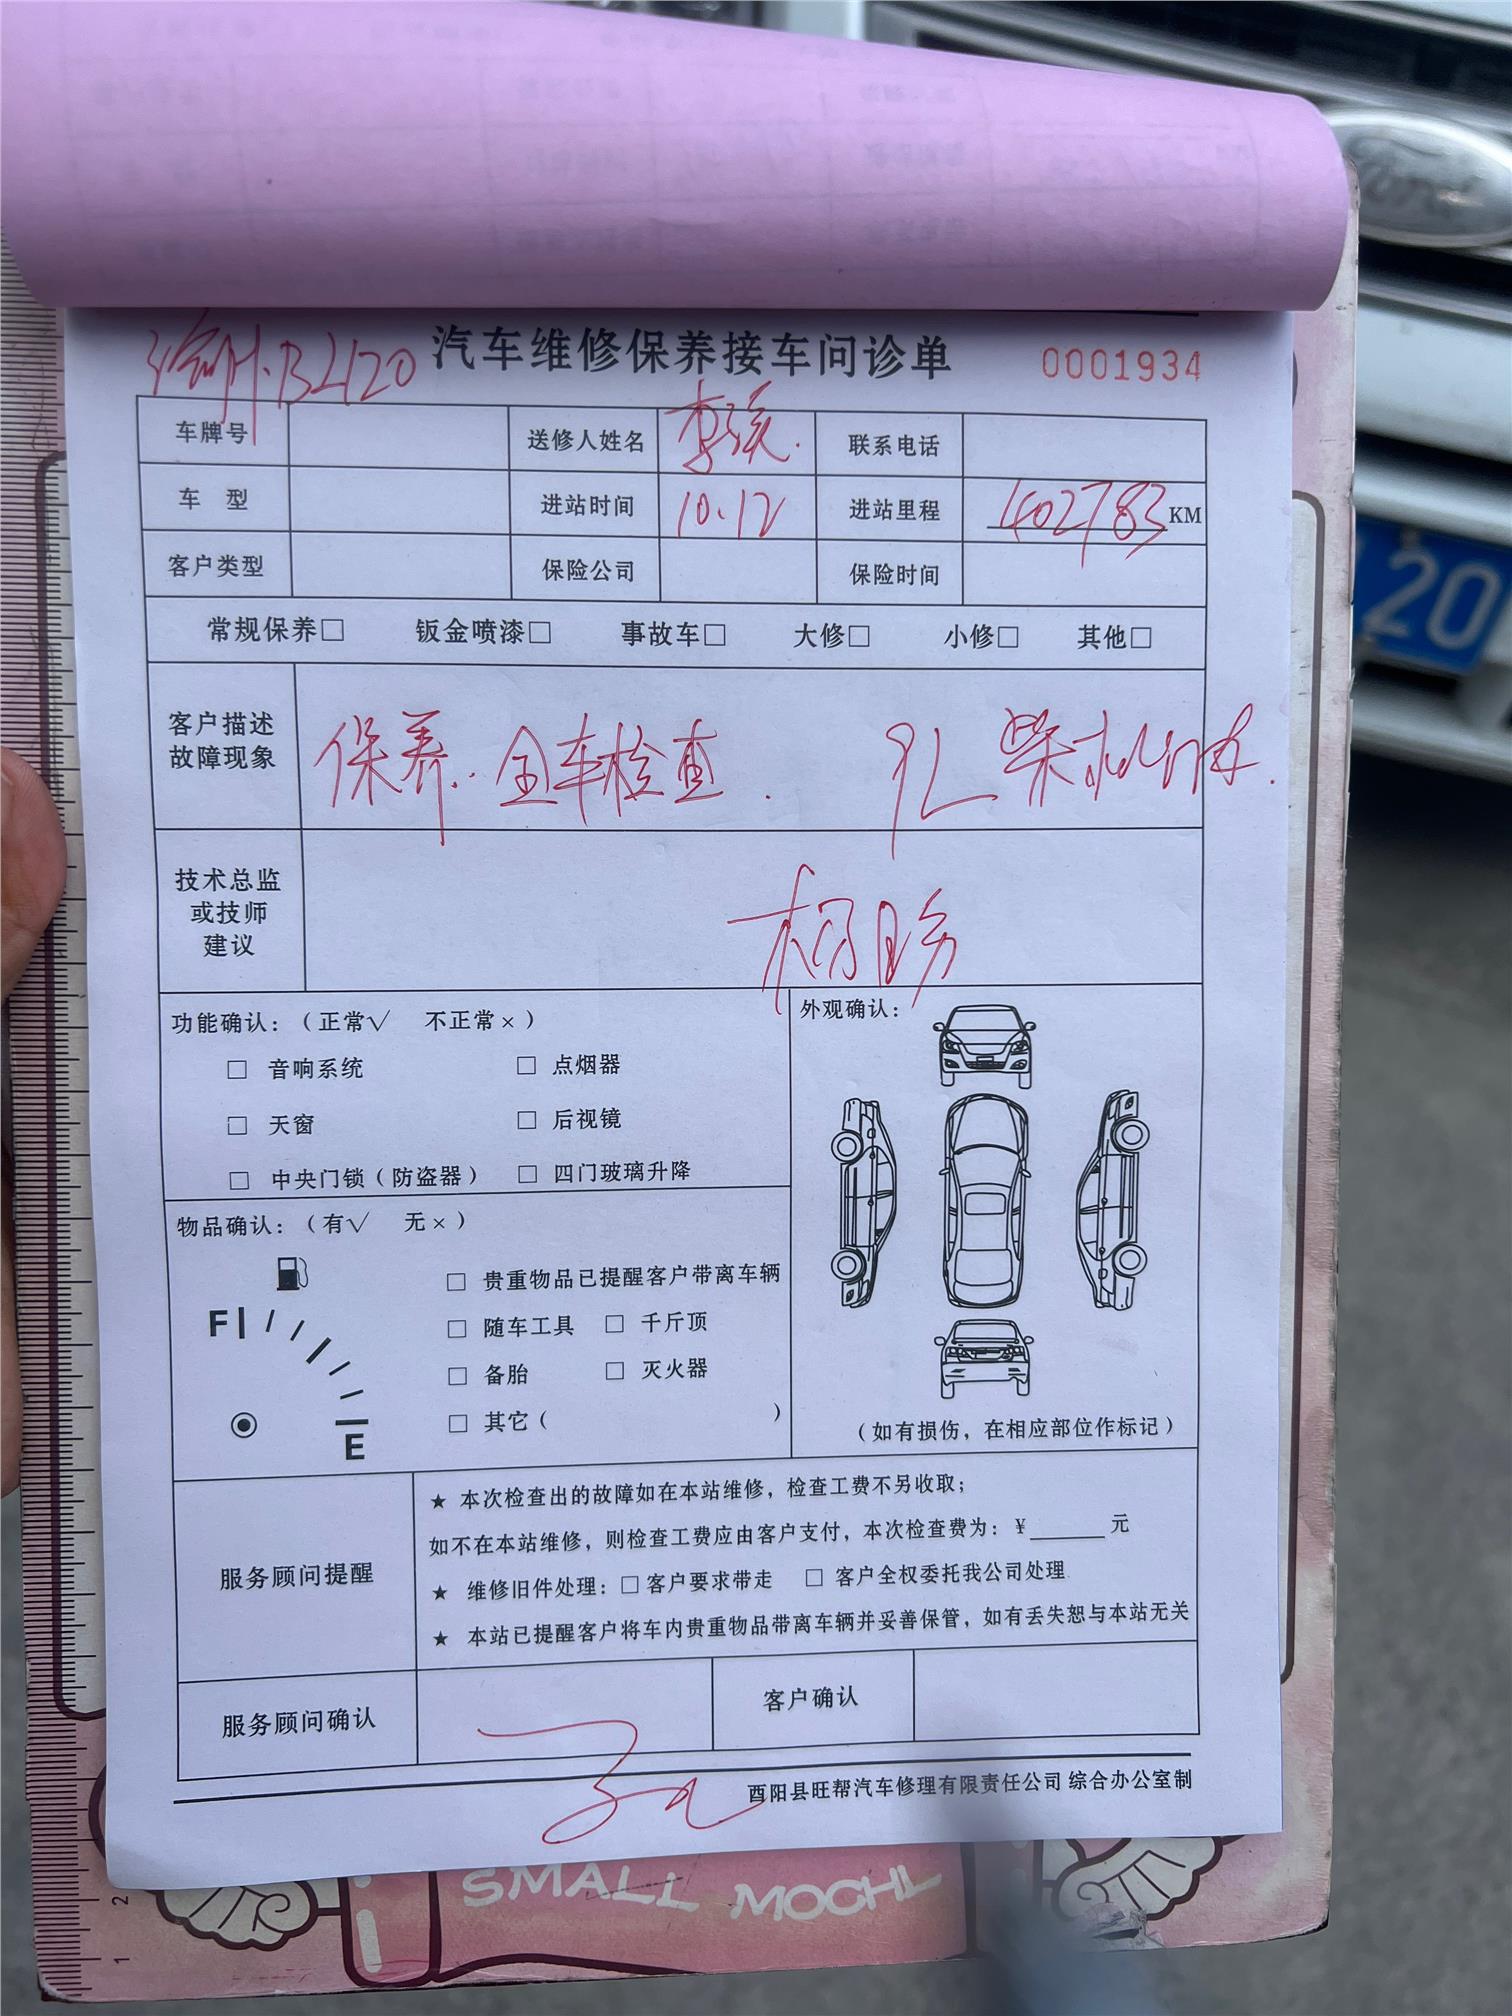 Ford
20
渝H·BL120 汽车维修保养接车问诊单 0001934
车牌号 送修人姓名 李 联系电话
车 型 进站时间 10.12 进站里程 402783 KM
客户类型 保险公司 保险时间
常规保养□ 钣金喷漆□ 事故车□ 大修□ 小修□ 其他□
客户描述
故障现象
保养. 全车检查. 9L 柴机油.
技术总监
或技师
建议
功能确认：（正常√ 不正常×）
□ 音响系统 □ 点烟器
□ 天窗 □ 后视镜
□ 中央门锁（防盗器） □ 四门玻璃升降
外观确认：
（如有损伤，在相应部位作标记）
物品确认：（有√ 无×）
F
E
□ 贵重物品已提醒客户带离车辆
□ 随车工具 □ 千斤顶
□ 备胎 □ 灭火器
□ 其它（ ）
服务顾问提醒
★ 本次检查出的故障如在本站维修，检查工费不另收取；
如不在本站维修，则检查工费应由客户支付，本次检查费为：¥______元
★ 维修旧件处理：□客户要求带走 □ 客户全权委托我公司处理
★ 本站已提醒客户将车内贵重物品带离车辆并妥善保管，如有丢失恕与本站无关
服务顾问确认 客户确认
酉阳县旺帮汽车修理有限责任公司 综合办公室制
SMALL MOCHI
2
1